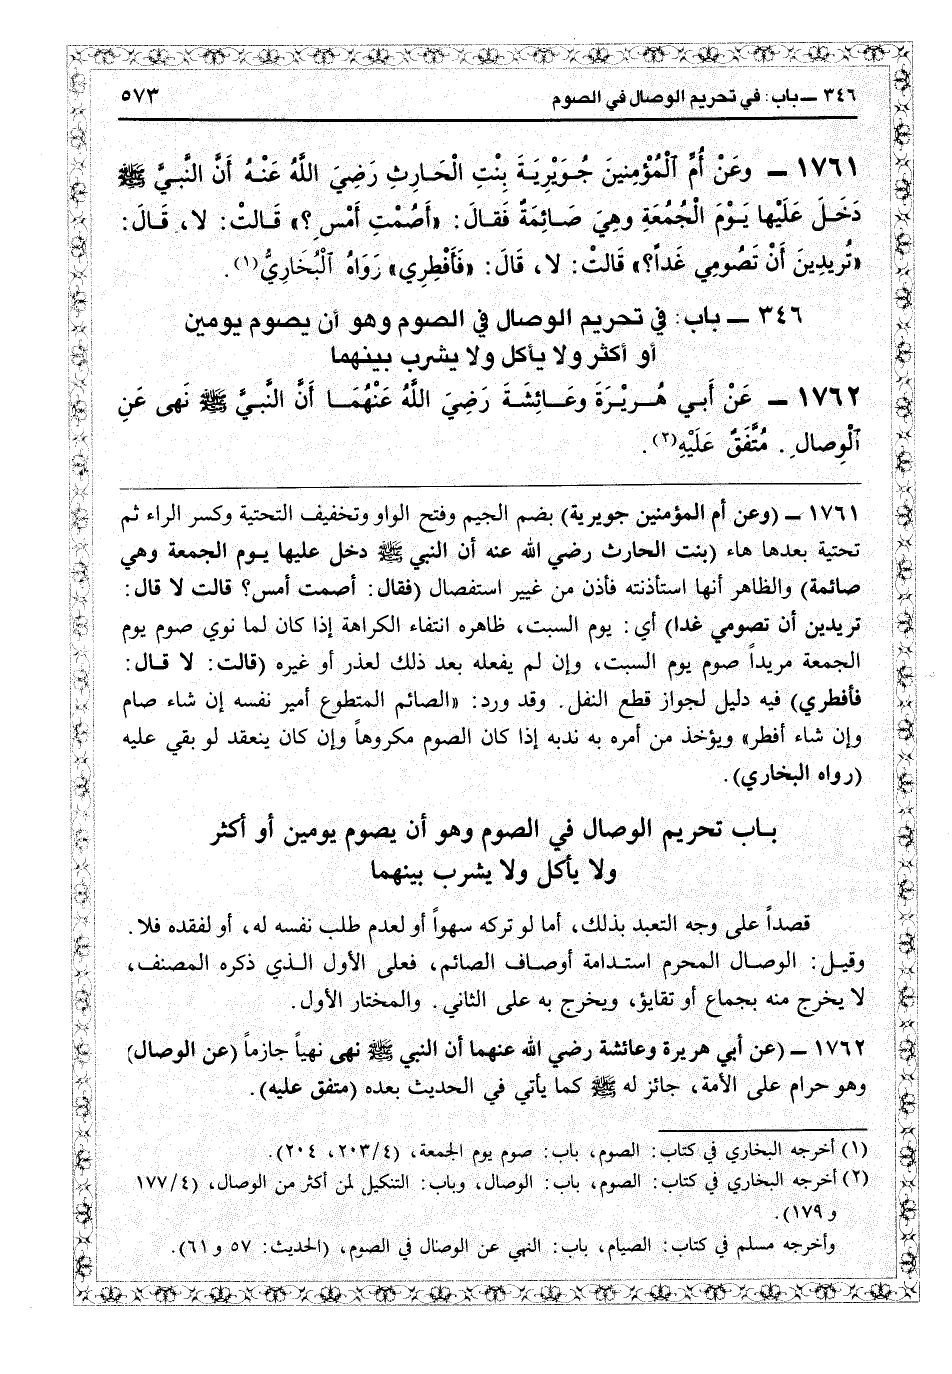 ٣٤٦ ــ باب: في تحريم الوصال في الصوم ٥٧٣
١٧٦١ ــ وعَنْ أُمِّ ٱلْمُؤْمِنِينَ جُوَيْرِيَةَ بِنْتِ الْحَارِثِ رَضِيَ اللَّهُ عَنْهُ أَنَّ النَّبِيَّ ﷺ
دَخَلَ عَلَيْها يَوْمَ الْجُمُعَةِ وهِيَ صَائِمَةٌ فَقالَ: «أَصُمْتِ أَمْسِ؟» قَالتْ: لا، قَالَ:
«تُرِيدِينَ أَنْ تَصُومِي غَداً؟» قَالتْ: لا، قَالَ: «فَأَفْطِرِي» رَوَاهُ ٱلْبُخَارِيُّ(١).
٣٤٦ ــ باب: في تحريم الوصال في الصوم وهو أن يصوم يومين
أو أكثر ولا يأكل ولا يشرب بينهما
١٧٦٢ ــ عَنْ أَبي هُرِيْرَةَ وعَائِشَةَ رَضِيَ اللَّهُ عَنْهُمَا أَنَّ النَّبيَّ ﷺ نَهى عَنِ
ٱلْوِصالِ. مُتَّفَقٌ عَلَيْهِ(٢).
١٧٦١ ــ (وعن أم المؤمنين جويرية) بضم الجيم وفتح الواو وتخفيف التحتية وكسر الراء ثم
تحتية بعدها هاء (بنت الحارث رضي الله عنه أن النبي ﷺ دخل عليها يوم الجمعة وهي
صائمة) والظاهر أنها استأذنته فأذن من غيير استفصال (فقال: أصمت أمس؟ قالت لا قال:
تريدين أن تصومي غدا) أي: يوم السبت، ظاهره انتفاء الكراهة إذا كان لما نوي صوم يوم
الجمعة مريداً صوم يوم السبت، وإن لم يفعله بعد ذلك لعذر أو غيره (قالت: لا قال:
فأفطري) فيه دليل لجواز قطع النفل. وقد ورد: «الصائم المتطوع أمير نفسه إن شاء صام
وإن شاء أفطر» ويؤخذ من أمره به ندبه إذا كان الصوم مكروهاً وإن كان ينعقد لو بقي عليه
(رواه البخاري).
باب تحريم الوصال في الصوم وهو أن يصوم يومين أو أكثر
ولا يأكل ولا يشرب بينهما
قصداً على وجه التعبد بذلك، أما لو تركه سهواً أو لعدم طلب نفسه له، أو لفقده فلا.
وقيل: الوصال المحرم استدامة أوصاف الصائم، فعلى الأول الذي ذكره المصنف،
لا يخرج منه بجماع أو تقايؤ، ويخرج به على الثاني. والمختار الأول.
١٧٦٢ ــ (عن أبي هريرة وعائشة رضي الله عنهما أن النبي ﷺ نهى نهياً جازماً (عن الوصال)
وهو حرام على الأمة، جائز له ﷺ كما يأتي في الحديث بعده (متفق عليه).
(١) أخرجه البخاري في كتاب: الصوم، باب: صوم يوم الجمعة، (٢٠٣/٤، ٢٠٤).
(٢) أخرجه البخاري في كتاب: الصوم، باب: الوصال، وباب: التنكيل لمن أكثر من الوصال، (١٧٧/٤
و ١٧٩).
وأخرجه مسلم في كتاب: الصيام، باب: النهي عن الوصال في الصوم، (الحديث: ٥٧ و ٦١).